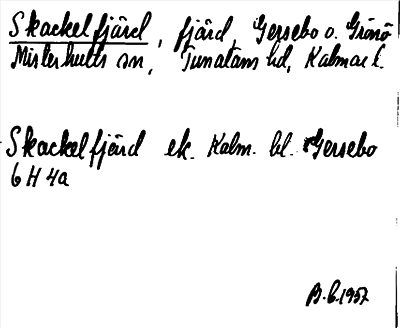 Skackelfjärd, fjärd, Gersebo o. Grönö
Misterhults sn, Tunaläns hd, Kalmar l.
Skackelfjärd ek. Kalm. bl. Gersebo
6 H 4a
B.G.1957